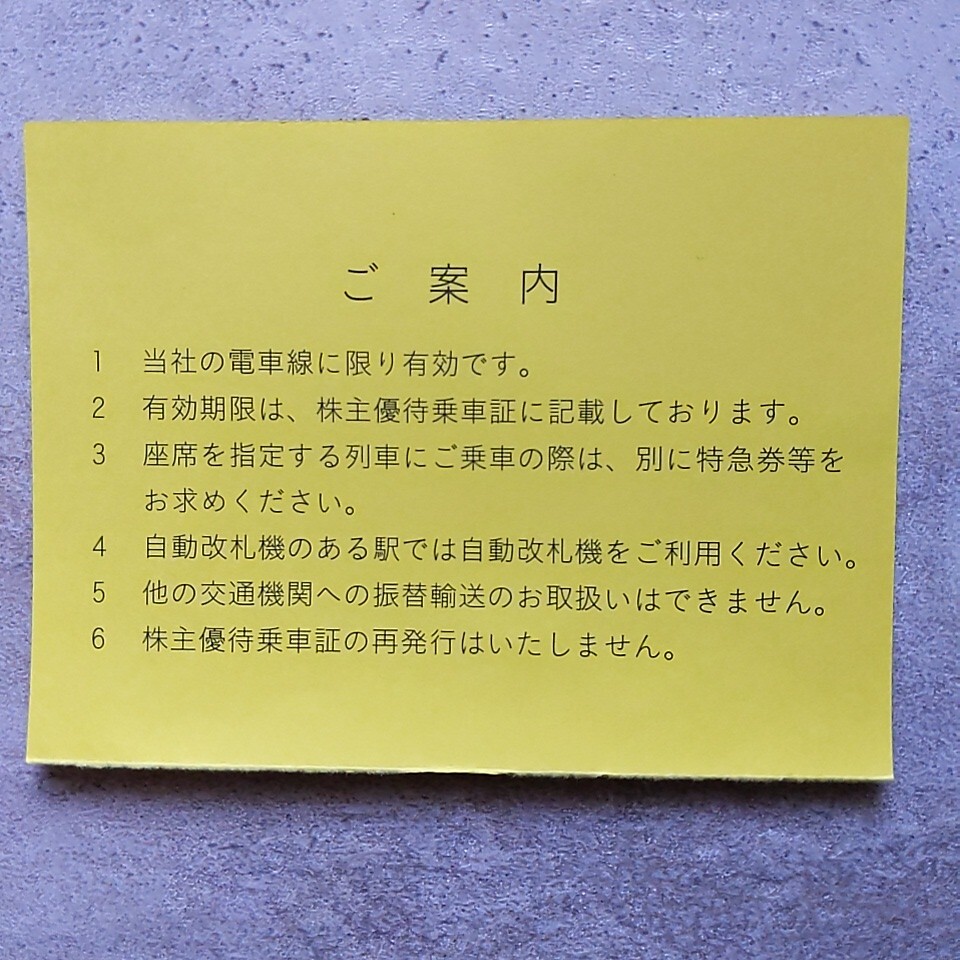 ご案内
1 当社の電車線に限り有効です。
2 有効期限は、株主優待乗車証に記載しております。
3 座席を指定する列車にご乗車の際は、別に特急券等を
お求めください。
4 自動改札機のある駅では自動改札機をご利用ください。
5 他の交通機関への振替輸送のお取扱いはできません。
6 株主優待乗車証の再発行はいたしません。